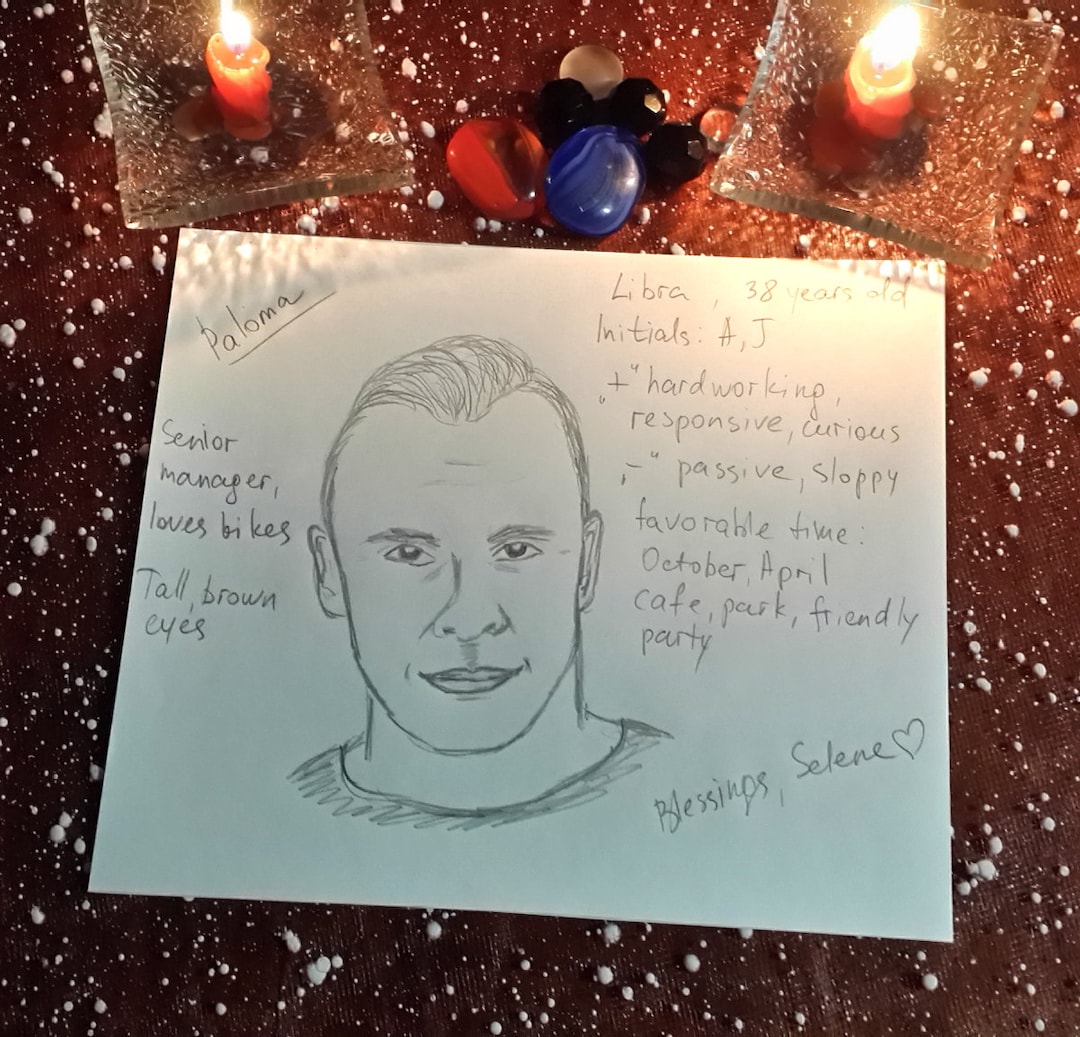 Paloma
Senior
manager,
loves bikes
Tall, brown
eyes
Libra, 38 years old
Initials: A, J
"+" hardworking,
responsive, curious
"-" passive, sloppy
favorable time:
October, April
cafe, park, friendly
party
Blessings, Selene♡